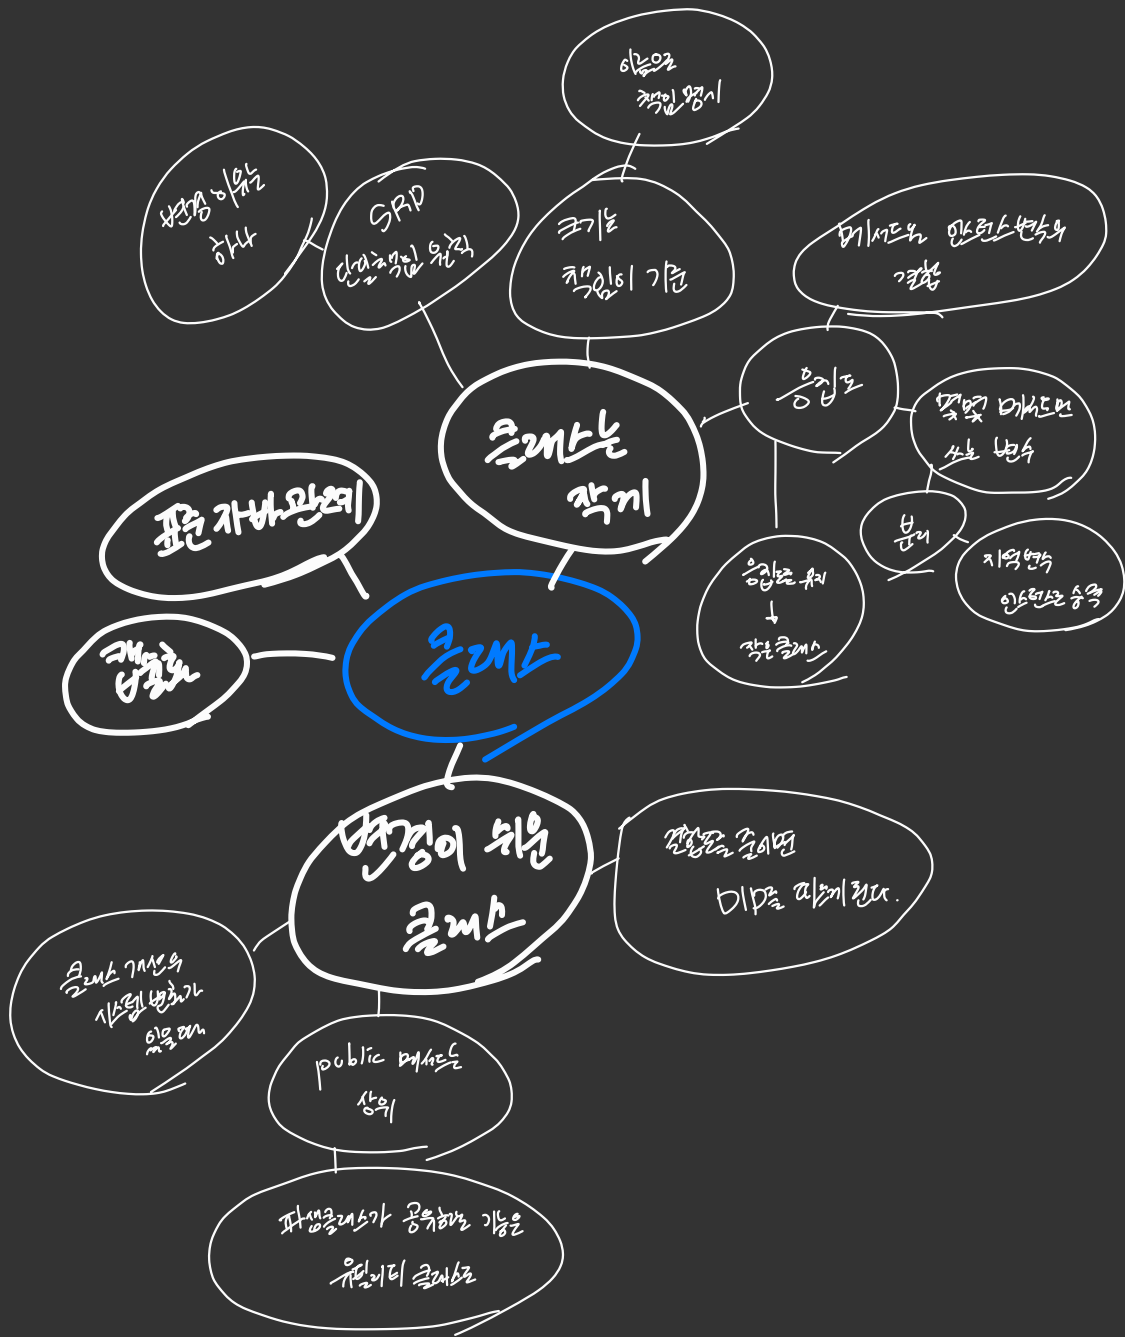 이름으로
책임 명시
변경 이유는
하나
SRP
단일 책임 원칙
크기는
책임이 기준
메서드와 인스턴스 변수의
결합
응집도
몇몇 메서드만
쓰는 변수
분리
지역변수
인스턴스로 승격
응집도를 유지
↓
작은 클래스
클래스는
작게
표준 자바 관례
캡슐화
클래스
변경이 쉬운
클래스
결합도를 줄이면
DIP를 따르게 된다.
클래스 개선은
시스템 변화가
있을 때
public 메서드는
상위
파생클래스가 공유하는 기능은
유틸리티 클래스로